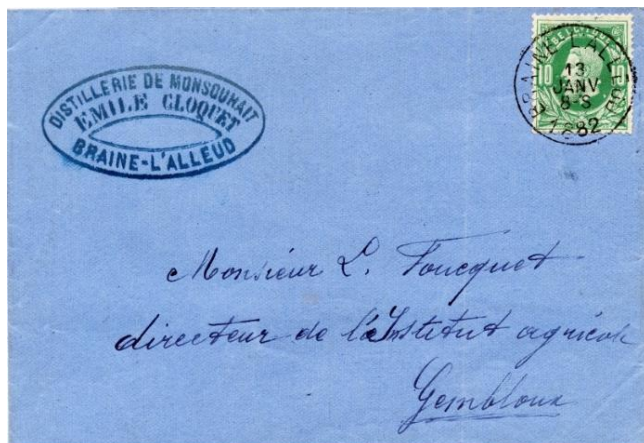 DISTILLERIE DE MONSOUHAIT
EMILE CLOQUET
BRAINE-L'ALLEUD
BELGIQUE
10 10
BRAINE-L'ALLEUD
13
JANV
8-9
1882
Monsieur L. Foucquet
directeur de l'Institut agricole
Gembloux